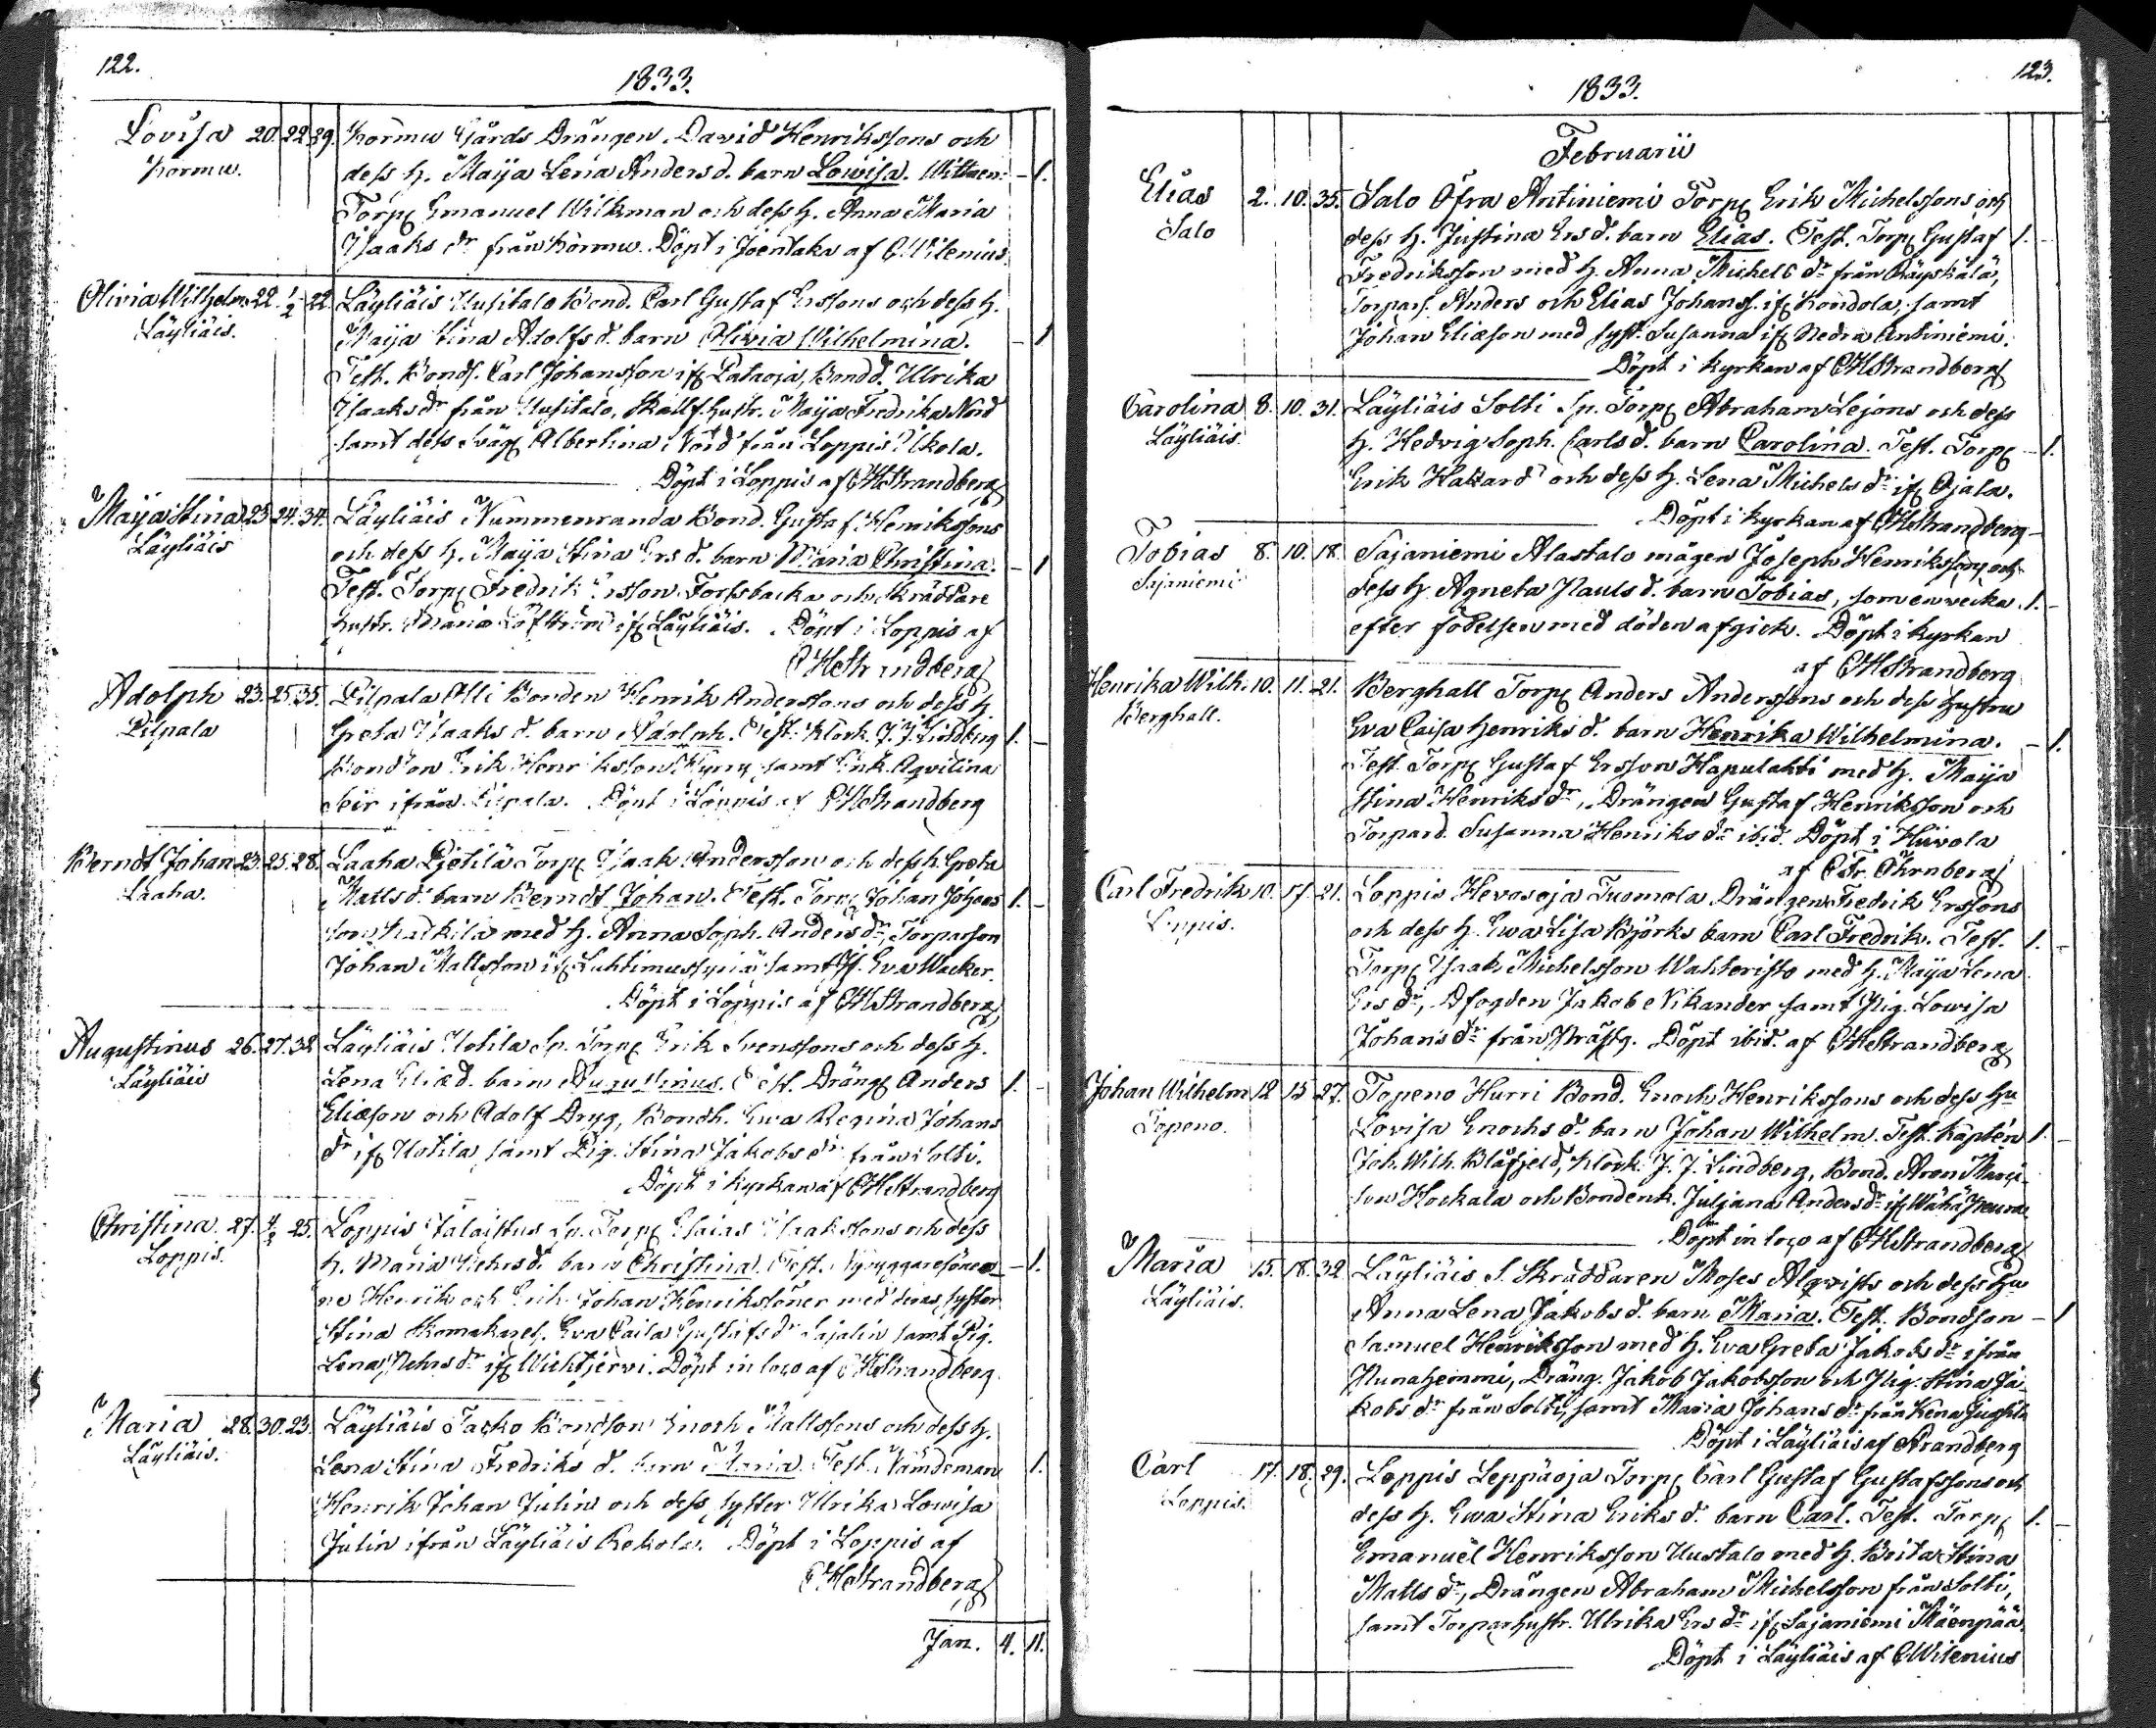 122.
1833.
Lovisa 20. 22. 29. Kormu Gårds Drängen David Henrikssons och
Kormu. dess h. Maija Lena Andersd. barn Lowisa. Wittnen: – 1.
Torp. Emanuel Wilkman och dess h. Anna Maria
Isaaks dr från Kormu. Döpt i Joentaka af C Wilenius.
Olivia Wilhelm. 22. 1/2 22. Läyliäis Uusitalo Bond. Carl Gustaf Erssons och dess h.
Läyliäis. Maija Stina Adolfsd. barn Olivia Wilhelmina. – 1
Test. Bonds. Carl Johansson ifr Pataoja, Bondd. Ulrika
Isaaksdr från Uusitalo, Hustr. Maija Fredrika Nord
samt dess Sväg. Albertina Nord från Loppis
Döpt i Loppis af C H Strandberg
Maija Stina 23 24. 34. Läyliäis Nummenranda Bond. Gustaf Henrikssons
Läyliäis och dess h. Maija Stina Ersd. barn Maria Christina. – 1
Test. Torp. Fredrik Ersson Forssbacka och Skräddare
hustr. Maria Löfström ifr Läyliäis. Döpt i Loppis af
C H Strandberg
Adolph 23. 25. 35. Pilpala Olli Bonden Henrik Anderssons och dess h
Pilpala Greta Isaaksd. barn Adolph. Test. Klock. J. J. Lindberg 1. –
Bondson Erik Henriksson samt Enk. Aqvilina
ifrån Pilpala. Döpt i Loppis af C H Strandberg
Berndt Johan 23. 25. 28. Laaha Pietilä Torp. Isaak Andersson och dess h. Greta
Laaha. Mattsd. barn Berndt Johan. Test. Torp. Johan Johans 1. –
son med h. Anna Soph. Andersdr, Torparson
Johan Mattsson samt Eva Wacker.
Döpt i Loppis af C H Strandberg
Augustinus 26. 27. 32 Läyliäis Uotila Sp. Torp. Erik Svenssons och dess h.
Läyliäis Lena Eliæd. barn Augustinus. Test. Dräng. Anders 1. –
Eliæson och Adolf Dryg, Bondh. Ewa Regina Johans
dr ifr Uotila samt Pig. Stina Jakobsdr från Solti.
Döpt i kyrkan af C H Strandberg
Christina. 27. 25. Loppis Jalaistus Sp. Torp. Esaias Isaakssons och dess
Loppis. h. Maria d. barn Christina. Test. Nybyggaresöner – 1.
ne Henrik och Erik Johan Henrikssöner med deras syster
Stina Skomakares. Eva Caisa Gustafsdr Sajalin samt Pig.
Lena dr ifr Wichtjervi. Döpt in loco af C H Strandberg
Maria 28. 30. 23. Läyliäis Jacko Bondson Enoch Mattssons och dess h.
Läyliäis. Lena Stina Fredriks d. barn Maria. Test. Nämdeman 1.
Henrik Johan Julin och dess syster Ulrika Lowisa
Julin ifrån Läyliäis Kokola. Döpt i Loppis af
C H Strandberg
Jan. 4. 11.
123.
1833.
Februarii
Elias 2. 10. 35. Salo Öfra Antiniemi Torp. Erik Michelssons och
Salo dess h. Justina Ersd. barn Elias. Test. Torp. Gustaf 1. –
Fredriksson med h. Anna Michels dr från Räyskälä,
Torpars. Anders och Elias Johanss. ifr Kondola, samt
Johan Eliæson med syst. Susanna ifr Nedra Antiniemi.
Döpt i kyrkan af C H Strandberg
Carolina 8. 10. 31. Läyliäis Solti Sp. Torp. Abraham Lejons och dess
Läyliäis. h. Hedvig Soph. Carlsd. barn Carolina. Test. Torp. – 1.
Erik Hakard och dess h. Lena Michelsdr ifr Ojala.
Döpt i kyrkan af C H Strandberg
Tobias 8. 10. 18. Sajaniemi Alastalo mågen Joseph Henrikssons och
Sajaniemi dess h. Agneta Paulsd. barn Tobias, som en vecka 1. –
efter födelsen med döden afgick. Döpt i kyrkan
af C H Strandberg
Henrika Wilh. 10. 11. 21. Berghall Torp. Anders Anderssons och dess hustru
Berghall. Eva Caisa Henriksd. barn Henrika Wilhelmina. – 1.
Test. Torp. Gustaf Ersson Hapulahti med h. Maija
Stina Henriksdr, Drängen Gustaf Henriksson och
Torpard. Susanna Henriksdr ibid. Döpt i Hiivola
af C Fr. Öhrnberg
Carl Fredrik 10. 17. 21. Loppis Hevosoja Tuomola Drängen Fredrik Erssons
Loppis. och dess h. Ewa Lisa Björks barn Carl Fredrik. Test. 1. –
Torp. Isaak Michelsson Wahteristo med h. Maija Lena
Ersdr, Afogden Jakob Nikander samt Pig. Lowisa
Johansdr från Prästg. Döpt ibid. af C H Strandberg
Johan Wilhelm 12 15 27. Topeno Hurri Bond. Enoch Henrikssons och dess Hu
Topeno. Lovisa Enochsd. barn Johan Wilhelm. Test. Kapten 1. –
Joh. Wilh. Blåfjeld, Klock. J. J. Lindberg, Bond. Aron
son Hockala och Bondenk. Juljana Andersdr ifr Wähä
Döpt in loco af C H Strandberg
Maria 15. 18. 32 Läyliäis S. Skräddaren Moses Alqvists och dess Hu
Läyliäis. Anna Lena Jakobsd. barn Maria. Test. Bondson – 1
Samuel Henriksson med h. Eva Greta Jakobsdr ifrån
Dräng. Jakob Jakobsson och Pig. Stina Ja-
kobsdr från Solti, samt Maria Johansdr från
Döpt i Läyliäis af Strandberg
Carl 17. 18. 29. Loppis Leppäoja Torp. Carl Gustaf Gustafssons och
Loppis. dess h. Ewa Stina Eriksd. barn Carl. Test. Torp. 1. –
Emanuel Henriksson Uustalo med h. Brita Stina
Mattsdr, Drängen Abraham Michelsson från Solti,
samt Torparhustr. Ulrika Ersdr ifr Sajaniemi Mäenpää.
Döpt i Läyliäis af C Wilenius